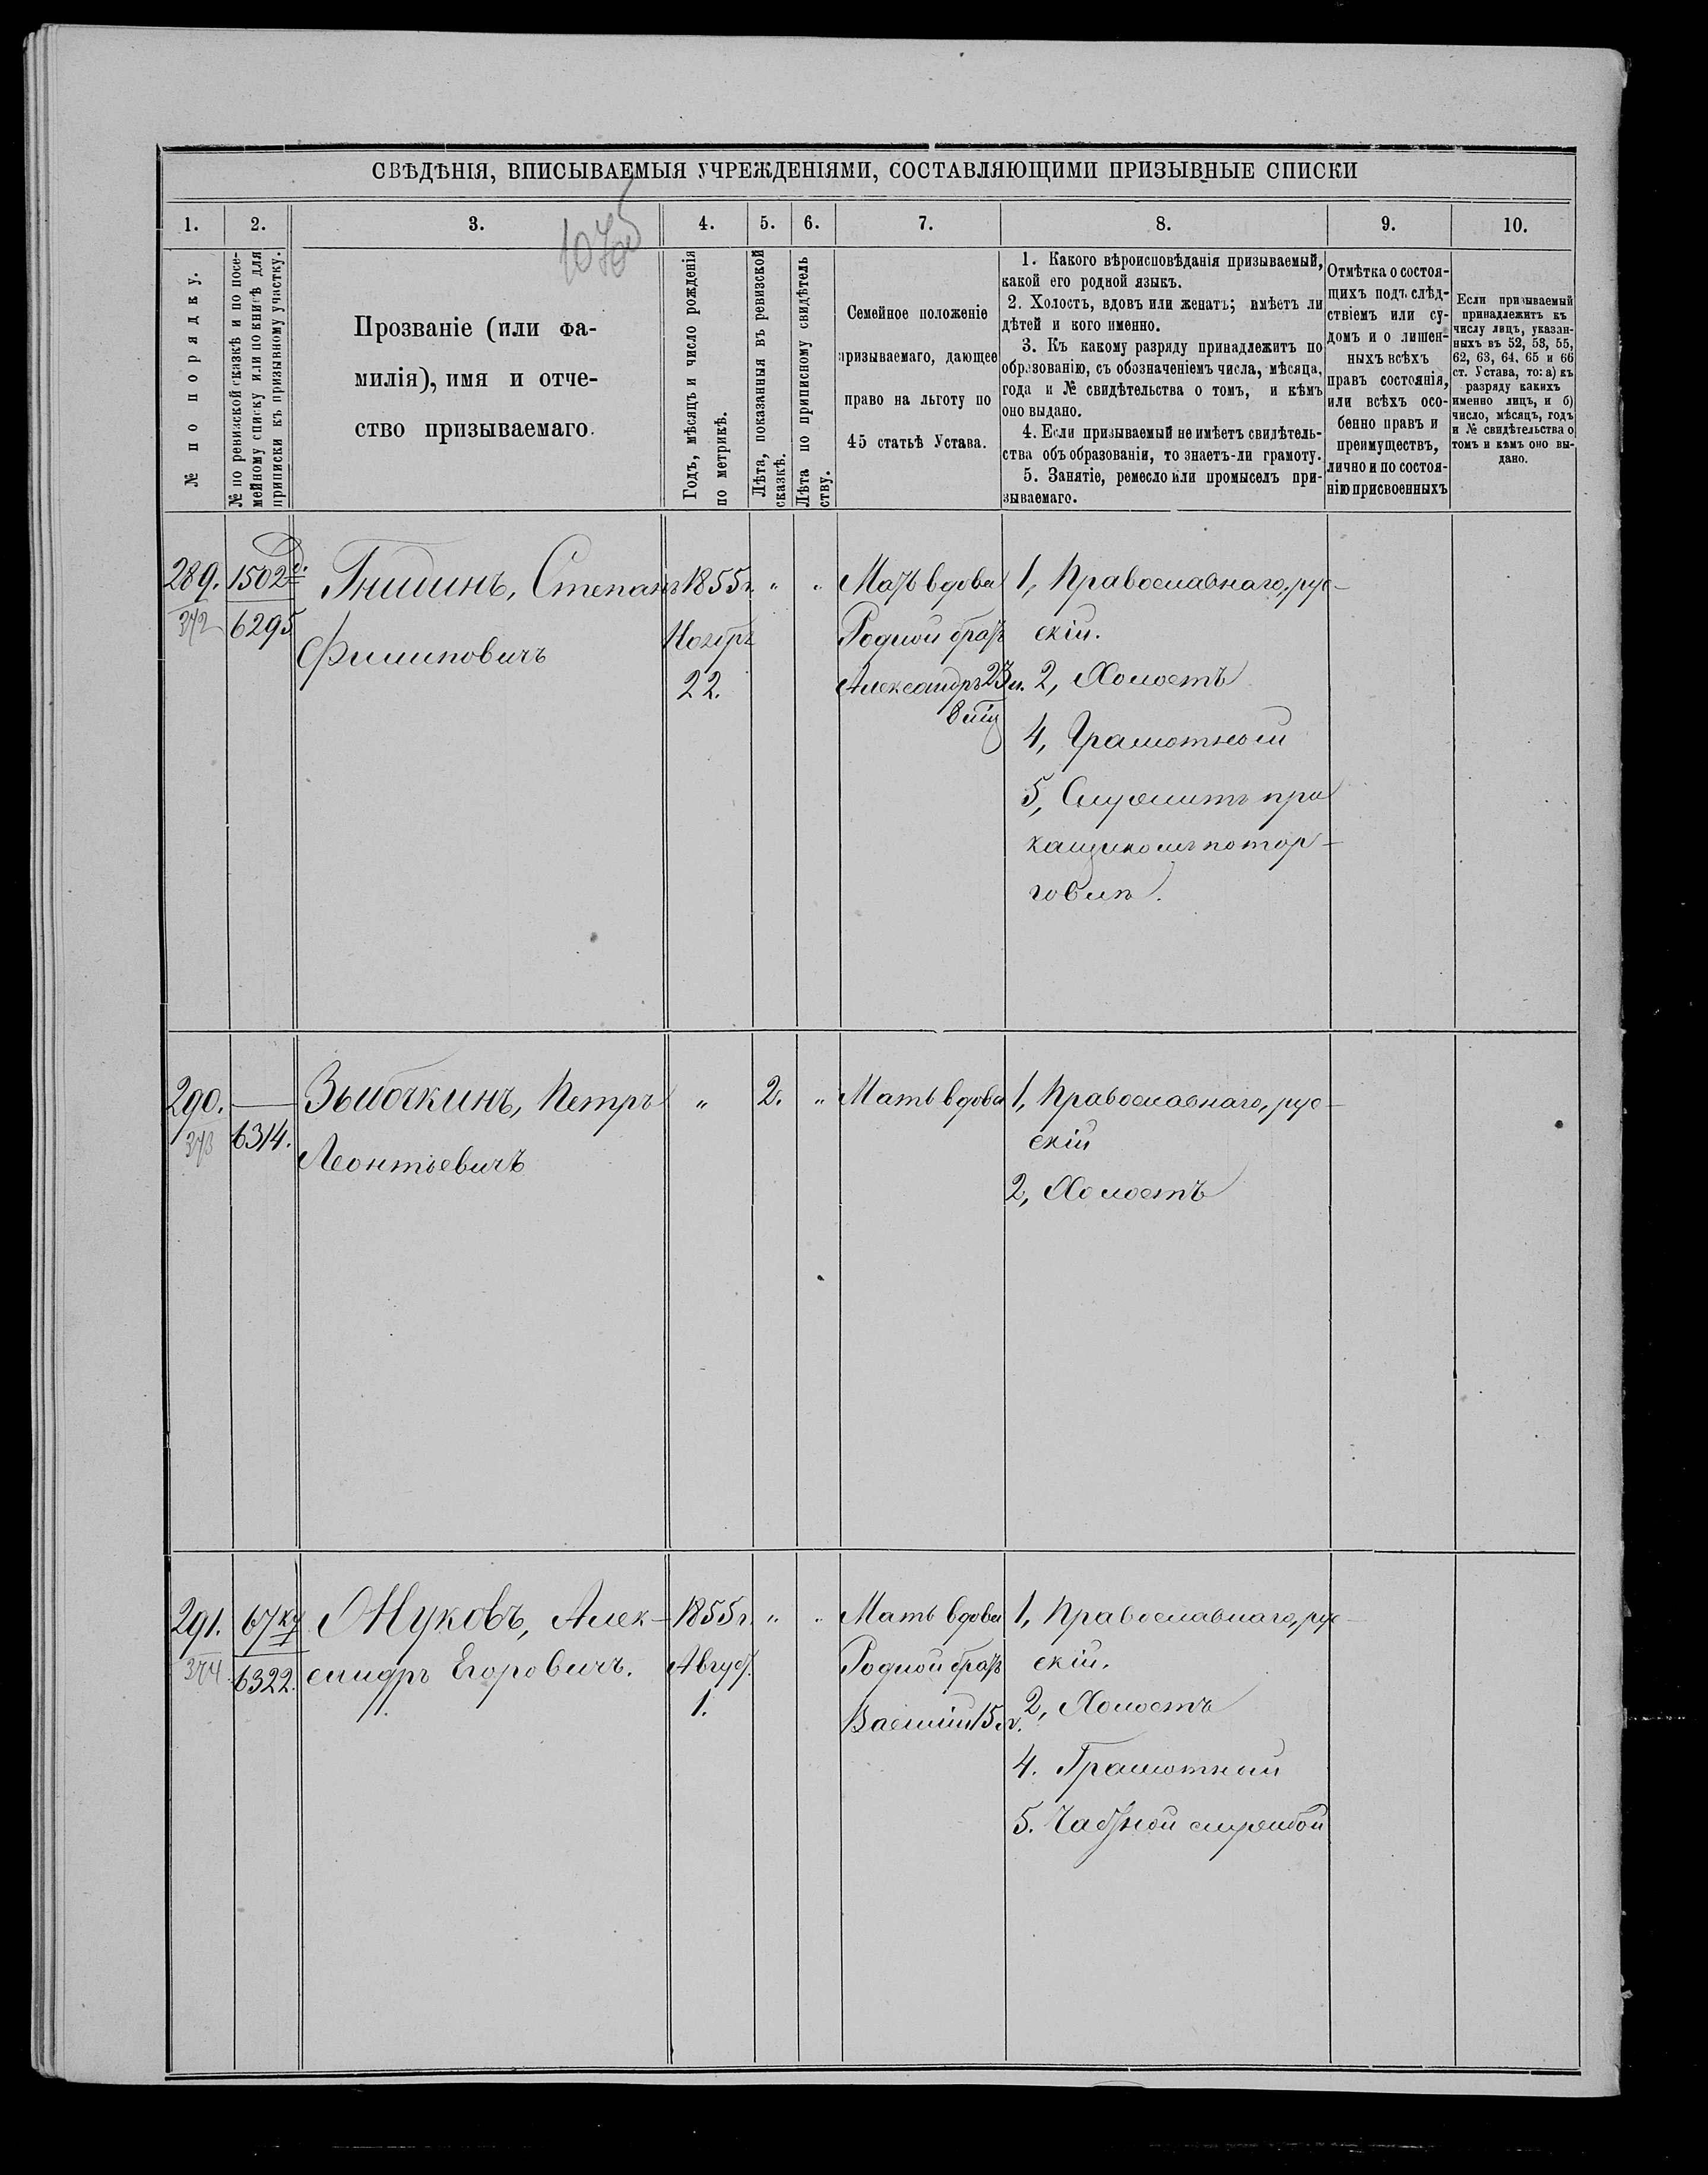 СВѢДѢНІЯ, ВПИСЫВАЕМЫЯ УЧРЕЖДЕНІЯМИ, СОСТАВЛЯЮЩИМИ ПРИЗЫВНЫЕ СПИСКИ
1. 2. 3. 4. 5. 6. 7. 8. 9. 10.
№ по порядку.
№ по ревизской сказкѣ и по посе-
мейному списку или по книгѣ для
приписки къ призывному участку.
Прозваніе (или фа-
милія), имя и отче-
ство призываемаго.
Годъ, мѣсяцъ и число рожденія
по метрикѣ.
Лѣта, показанныя въ ревизской
сказкѣ.
Лѣта по приписному свидѣтель
ству.
Семейное положеніе
призываемаго, дающее
право на льготу по
45 статьѣ Устава.
1. Какого вѣроисповѣданія призываемый,
какой его родной языкъ.
2. Холостъ, вдовъ или женатъ; имѣетъ ли
дѣтей и кого именно.
3. Къ какому разряду принадлежитъ по
образованію, съ обозначеніемъ числа, мѣсяца,
года и № свидѣтельства о томъ, и кѣмъ
оно выдано.
4. Если призываемый не имѣетъ свидѣтель-
ства объ образованіи, то знаетъ-ли грамоту.
5. Занятіе, ремесло или промыселъ при-
зываемаго.
Отмѣтка о состоя-
щихъ подъ слѣд-
ствіемъ или су-
домъ и о лишен-
ныхъ всѣхъ
правъ состоянія,
или всѣхъ осо-
бенно правъ и
преимуществъ,
лично и по состоя-
нію присвоенныхъ
Если призываемый
принадлежитъ къ
числу лицъ, указан-
ныхъ въ 52, 53, 55,
62, 63, 64, 65 и 66
ст. Устава, то: а) къ
разряду какихъ
именно лицъ, и б)
число, мѣсяцъ, годъ
и № свидѣтельства о
томъ и кѣмъ оно вы-
дано.
289.
372
1502
6295
Гнидинъ, Степанъ
Филиповичъ
1855 г.
Ноябрь
22.
" "
Мать вдова
Родной братъ
Александръ 23 л.
1, Православнаго, рус-
скій.
2, Холостъ
4, Грамотный
5, Служитъ при
кащикомъ по тор-
говлѣ.
290.
373
6314.
Зыбочкинъ, Петръ
Леонтьевичъ
" 2. "
Мать вдова
1, Православнаго, рус-
скій
2, Холостъ
291.
374
67
6322.
Жуковъ, Алек-
сандръ Егоровичъ.
1855 г.
Август.
1.
" "
Мать вдова
Родной братъ
Василій 15 л.
1, Православнаго, рус-
скій.
2, Холостъ
4. Грамотный
5. Частной службой